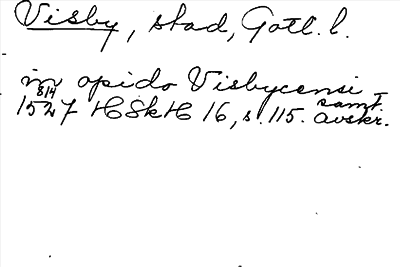 Visby, stad, Gotl. l.
in opido Visbycensi
1527 8/4 HSkH 16, s. 115. samt. avskr.